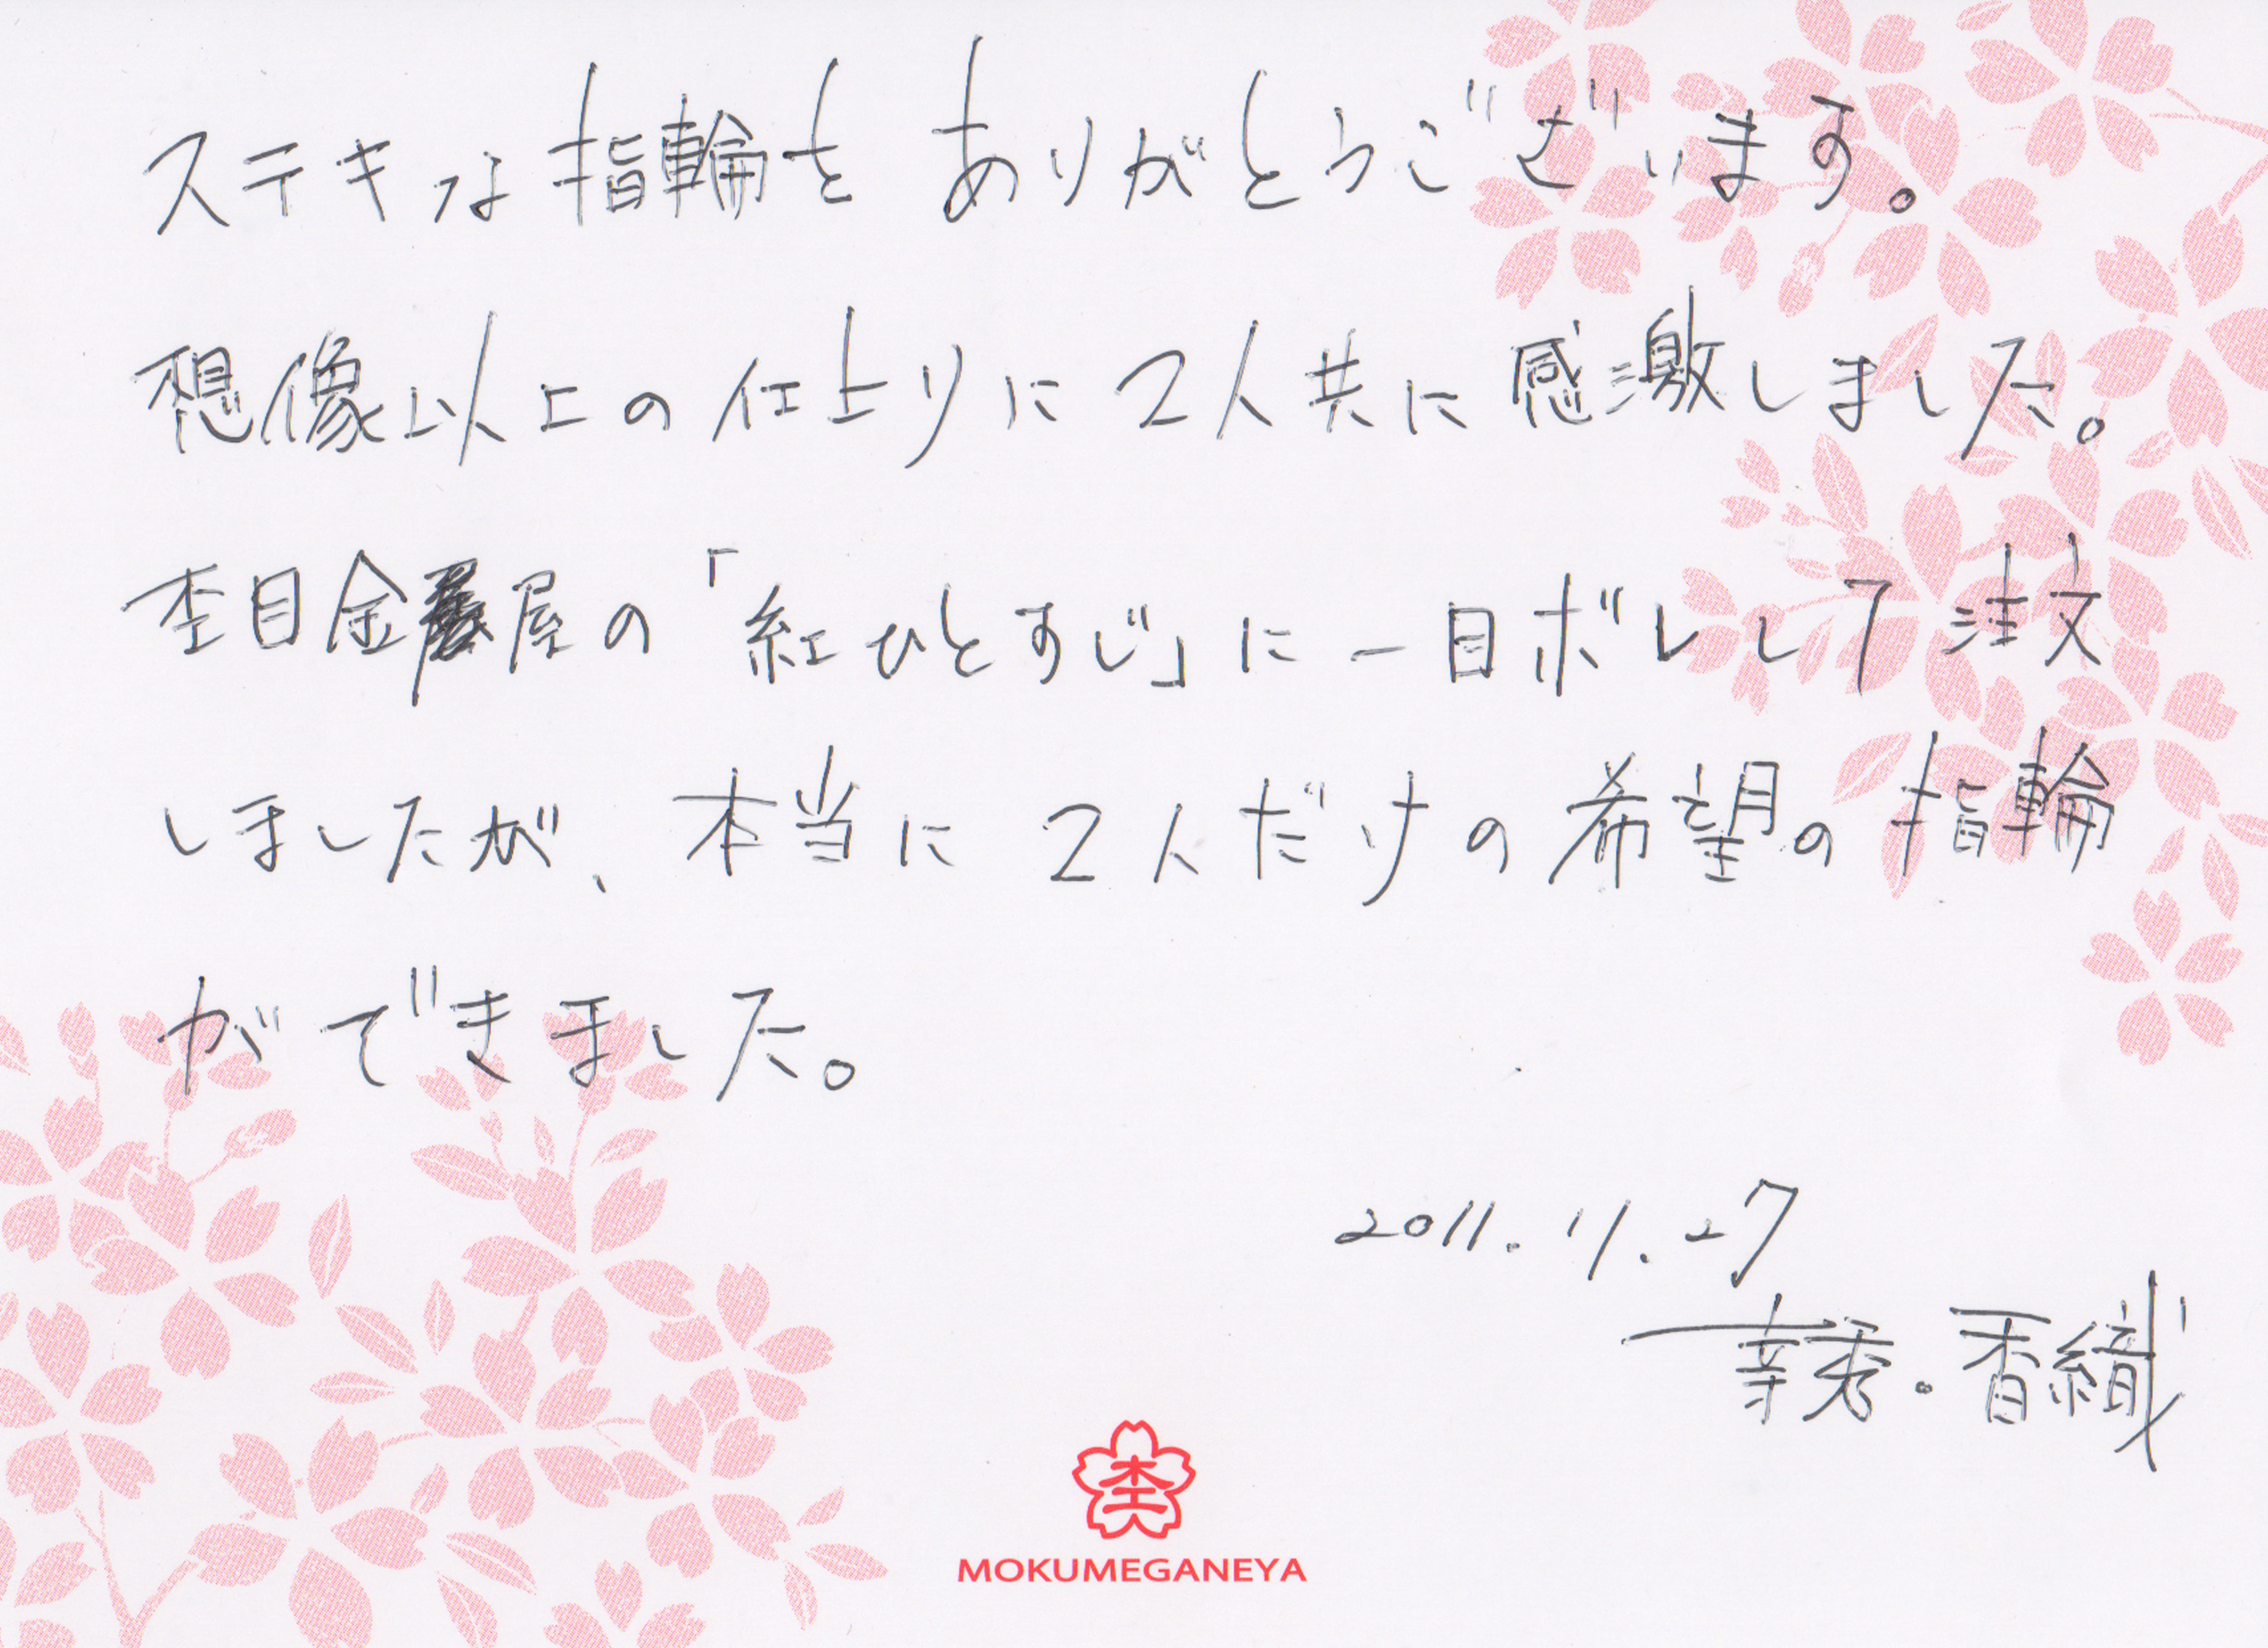 ステキな指輪をありがとうございます。
想像以上の仕上りに2人共に感激しました。
杢目金屋の「紅ひとすじ」に一目ボレして注文
しましたが、本当に2人だけの希望の指輪
ができました。
2011.11.27
幸秀・香織
杢
MOKUMEGANEYA